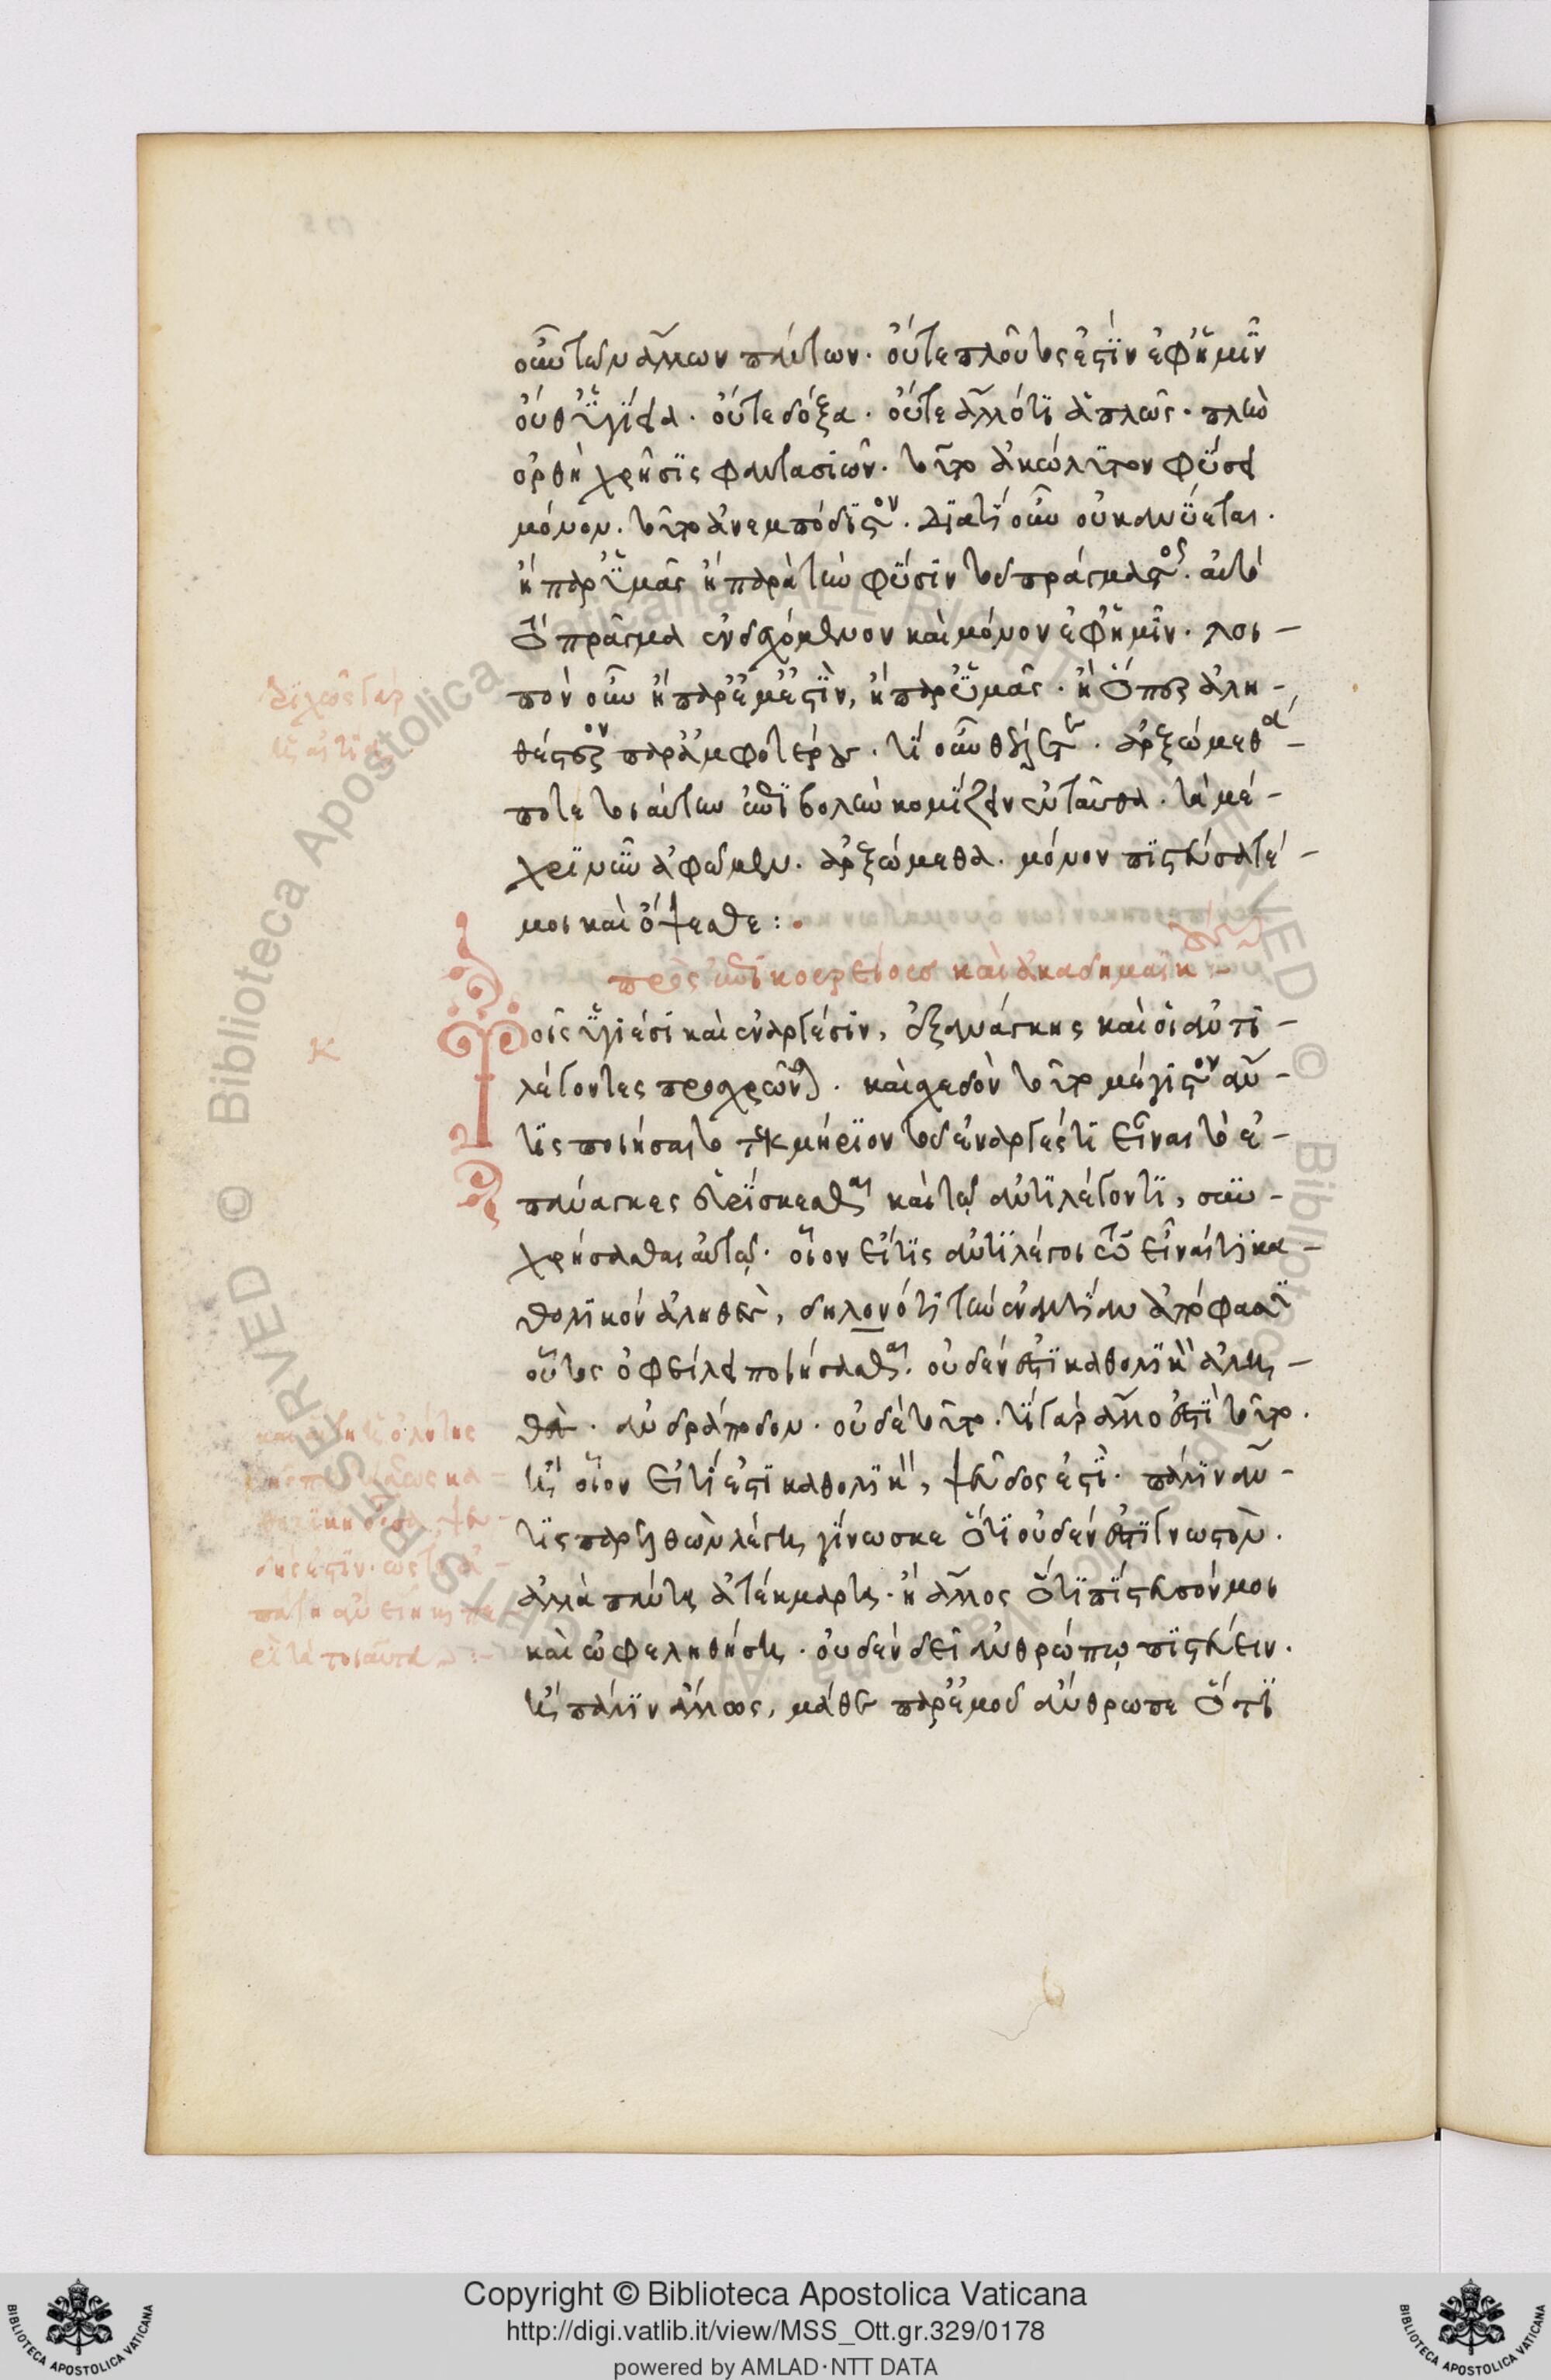 οὖν τῶν ἄλλων πάντων. οὔτε πλοῦτος ἐστὶν ἐφ' ἡμῖν
οὔθ' ὑγίεια. οὔτε δόξα. οὔτε ἄλλό τι ἁπλῶς. πλὴν
ὀρθὴ χρῆσις φαντασιῶν. τοῦτο ἀκώλυτον φύσει
μόνον. τοῦτο ἀνεμπόδιστον. διατί οὖν οὐκ ἀνύεται.
ἢ παρ' ὑμᾶς ἢ παρὰ τὴν φύσιν τοῦ πράγματος. αὐτὸ
τὸ πρᾶγμα ἐνδεχόμενον καὶ μόνον ἐφ' ἡμῖν. λοι-
πὸν οὖν ἢ παρ' ἐμέ ἐστὶν, ἢ παρ' ὑμᾶς. ἢ ὅπερ ἀλη-
θέστερον παρ' ἀμφοτέρους. τί οὖν θέλετε. ἀρξώμεθά
ποτε τοιαύτην ἐπιβολὴν κομίζειν ἐνταῦθα. τὰ μέ-
χρι νῦν ἀφῶμεν. ἀρξώμεθα. μόνον πιστεύσατέ
μοι καὶ ὄψεσθε:
πρὸς ἐπικουρείους καὶ ἀκαδημαϊκούς
Τοῖς ὑγιέσι καὶ ἐναργέσιν, ἐξανάγκης καὶ οἱ ἀντι-
λέγοντες προσχρῶνται. καὶ σχεδὸν τοῦτο μέγιστον ἄν
τις ποιήσαιτο τεκμήριον τοῦ ἐναργές τι εἶναι τὸ ἐ-
πάναγκες εὑρίσκεσθαι καὶ τῷ ἀντιλέγοντι, συγ-
χρήσασθαι αὐτῷ. οἷον εἴ τις ἀντιλέγοι τῷ εἶναί τι κα-
θολικὸν ἀληθές, δηλονότι τὴν ἐναντίαν ἀπόφασιν
οὗτος ὀφείλει ποιήσασθαι. οὐδέν ἐστι καθολικὸν ἀλη-
θές. ἀνδράποδον. οὐδὲ τοῦτο. τί γὰρ ἄλλο ἐστὶ τοῦτο.
ἢ οἷον εἴ τί ἐστι καθολικόν, ψεῦδος ἐστί. πάλιν ἄν
τις παρελθὼν λέγῃ γίνωσκε ὅτι οὐδέν ἐστι γνωστόν.
ἀλλὰ πάντα ἀτέκμαρτα. ἢ ἄλλος ὅτι πίστευσόν μοι
καὶ ὠφεληθήσῃ. οὐδὲν δεῖ ἀνθρώπῳ πιστεύειν.
ἢ πάλιν ἄλλος, μάθε παρ' ἐμοῦ ἄνθρωπε ὅτι
διχῶς γὰρ
Κ
Copyright © Biblioteca Apostolica Vaticana
http://digi.vatlib.it/view/MSS_Ott.gr.329/0178
powered by AMLAD·NTT DATA